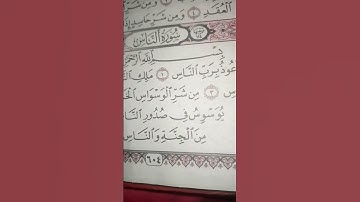 ٱلْعُقَدِ ٤ وَمِن شَرِّ حَاسِدٍ إِذَا
سُورَةُ النَّاسِ
بِسْمِ ٱللَّهِ ٱلرَّحْمَٰنِ
أَعُوذُ بِرَبِّ ٱلنَّاسِ ١ مَلِكِ
٣ مِن شَرِّ ٱلْوَسْوَاسِ
يُوَسْوِسُ فِى صُدُورِ
مِنَ ٱلْجِنَّةِ وَٱلنَّاسِ
٦٠٤